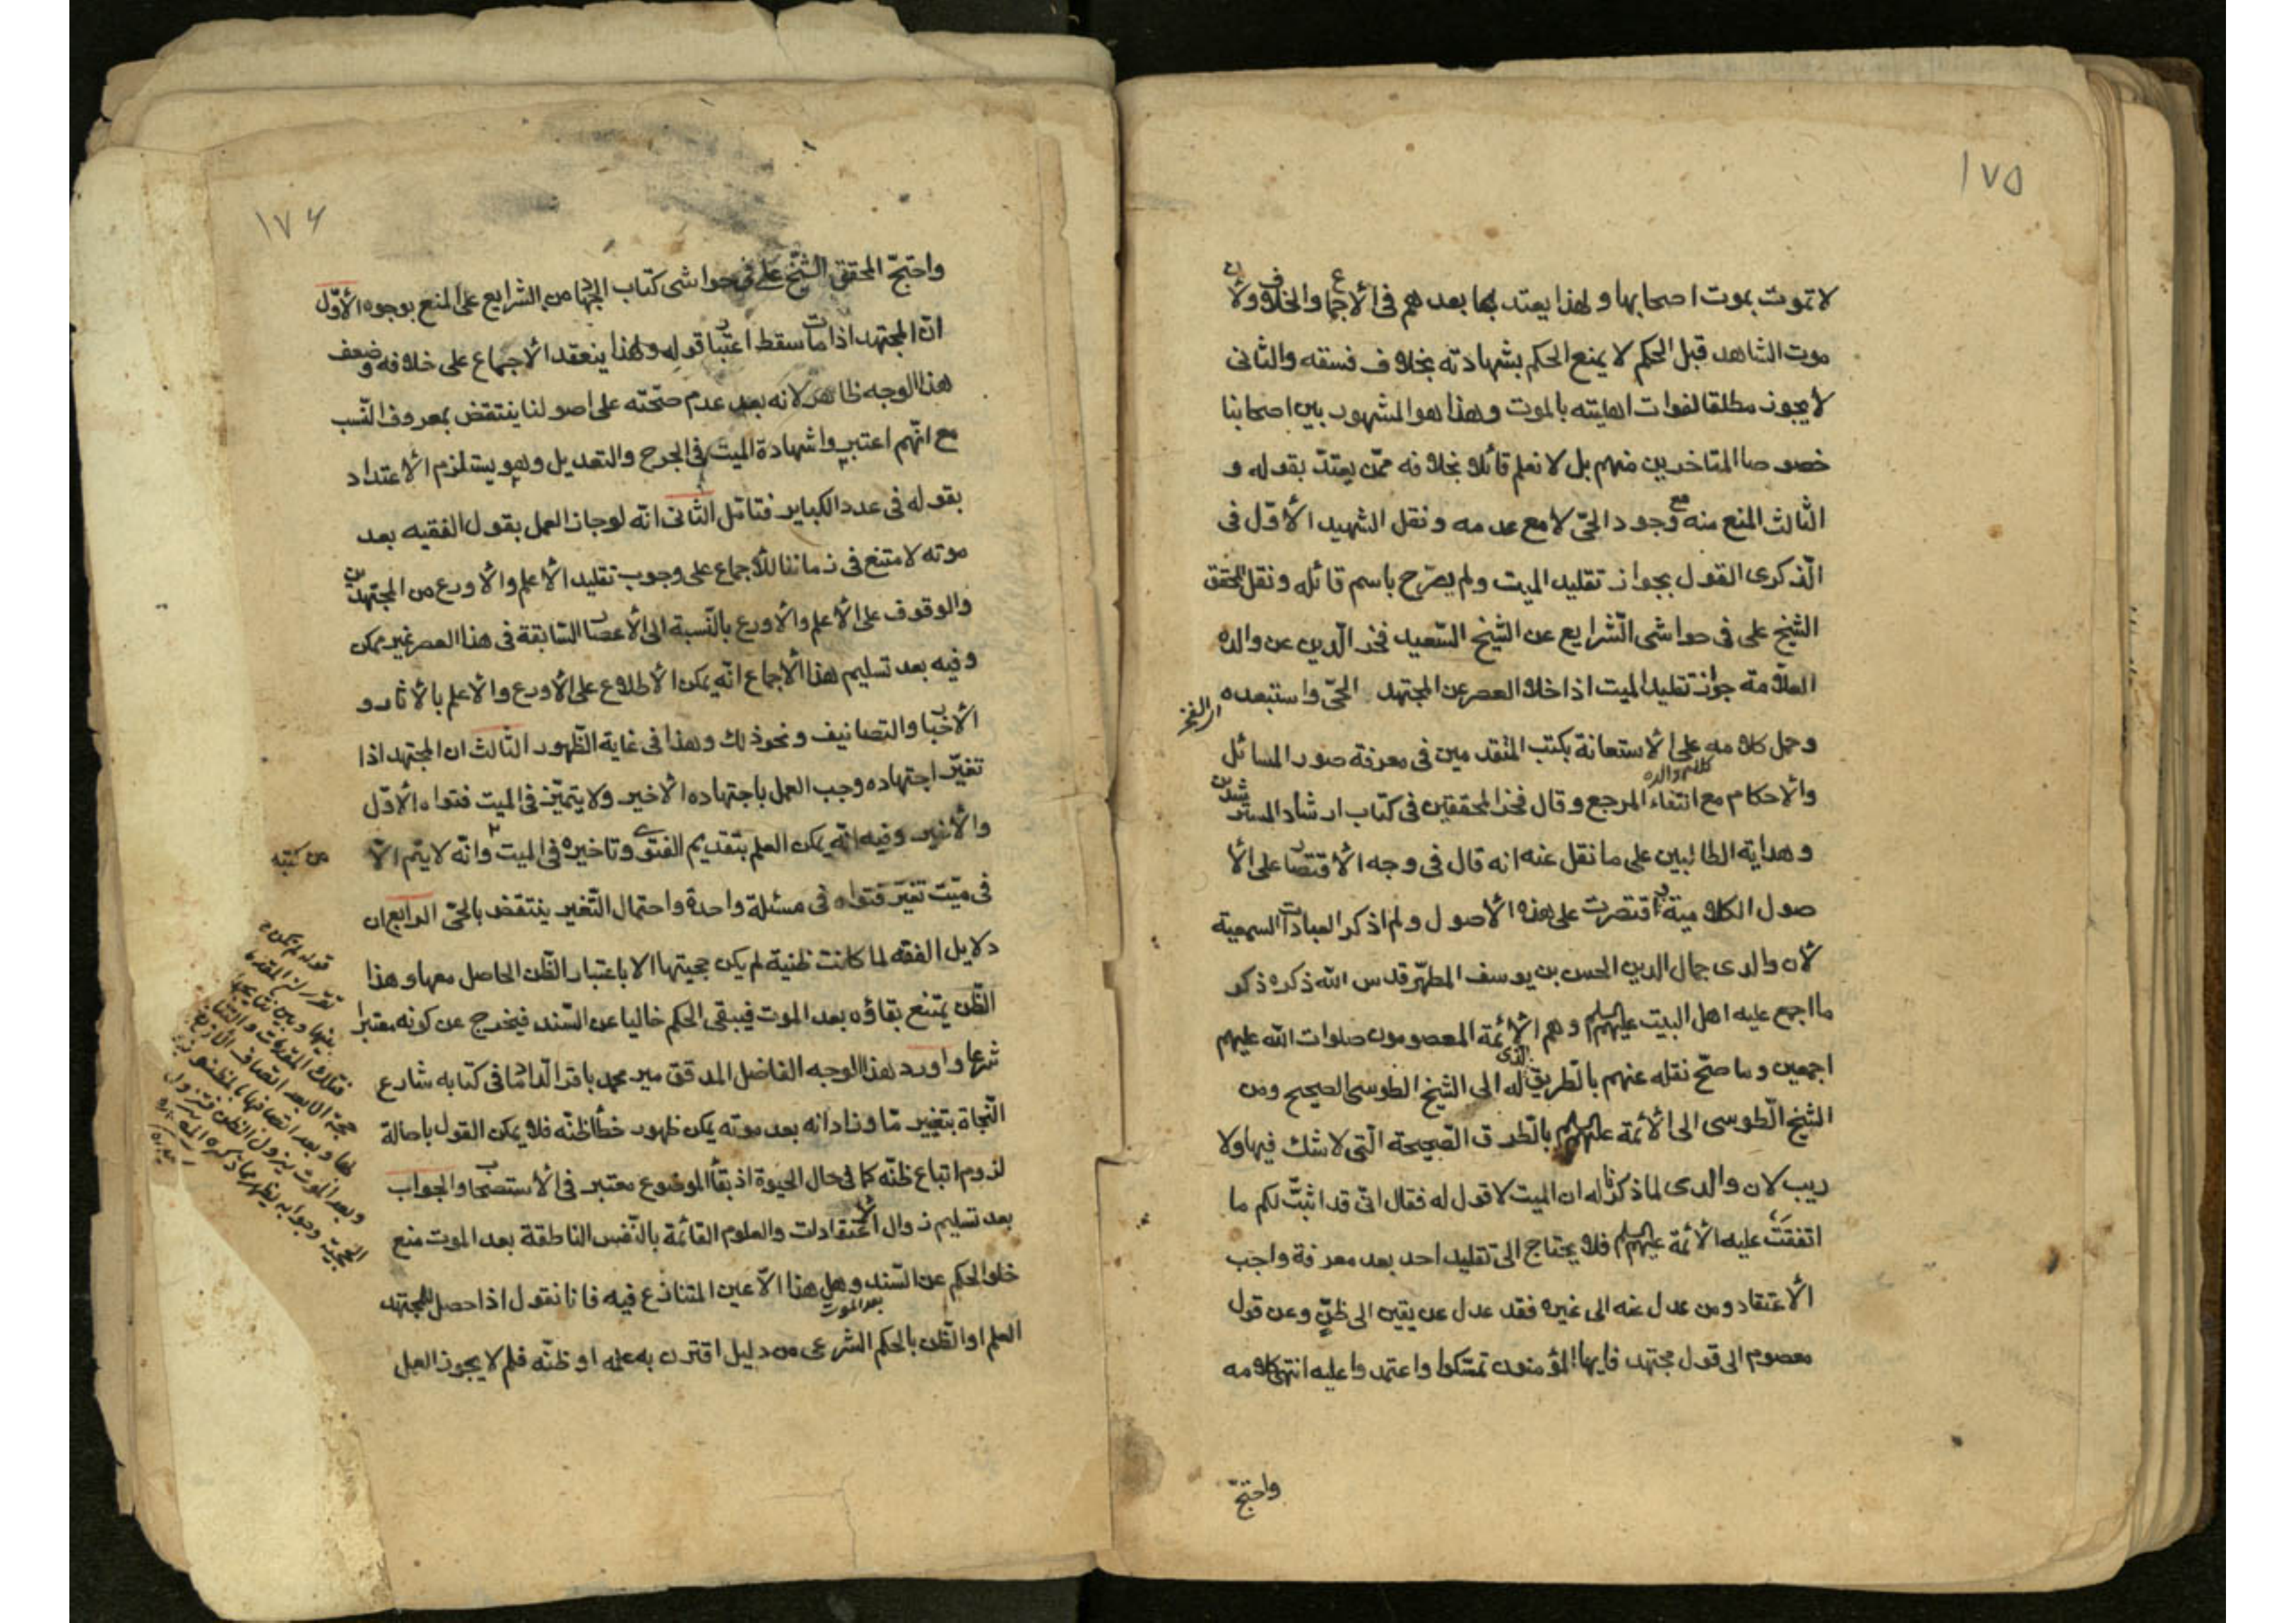 ١٧٥
لا تموت بموت اصحابها ولهذا يعتد بها بعدهم فى الأجماع والخلاف ولأن
موت الشاهد قبل الحكم لا يمنع الحكم بشهادته بخلاف فسقه والثانى
لأ يجوز مطلقا لفوات اهليته بالموت وهذا هو المشهور بين اصحابنا
خصوصا المتاخرين منهم بل لا نعلم قائلا بخلافه ممّن يعتدّ بقوله و
الثالث المنع منه مع وجود الحىّ لا مع عدمه ونقل الشهيد الأوّل فى
الذكرى القول بجواز تقليد الميت ولم يصرّح باسم قائله ونقل المحقق
الشيخ على فى حواشى الشّرايع عن الشّيخ السّعيد فخر الدّين عن والده
العلّامة جواز تقليد الميت اذا خلا العصر عن المجتهد الحىّ واستبعده
اى الفخر
وحمل كلامه على الأستعانة بكتب المتقدمين فى معرفة صور المسائل
كلام والده
والأحكام مع انتفاء المرجع وقال فخر المحققين فى كتاب ارشاد المسترشدين
وهداية الطالبين على ما نقل عنه انه قال فى وجه الأقتصار على الأ
صول الكلامية اقتصرت على هذه الأصول ولم اذكر العبادات السمعية
لأن والدى جمال الدين الحسن بن يوسف المطهّر قدس الله ذكره ذكر
ما اجمع عليه اهل البيت عليهم السلم وهم الأئمة المعصومون صلوات الله عليهم
اجمعين وما صحّ نقله عنهم بالطريق الذى له الى الشيخ الطوسى الصحيح ومن
الشيخ الطوسى الى الأئمة عليهم السلم بالطرق الصّحيحة الّتى لا شك فيها ولا
ريب لان والدى لما ذكرنا له ان الميت لا قول له فقال انّى قد اثبتّ لكم ما
اتفقت عليه الأئمة عليهم السلم فلا يحتاج الى تقليد احد بعد معرفة واجب
الأعتقاد ومن عدل عنه الى غيره فقد عدل عن يقين الى ظنّ وعن قول
معصوم الى قول مجتهد فايها المؤمنون تمسّكوا واعتمدوا عليه انتهى كلامه
واحتجّ
١٧٦
واحتجّ المحقق الشّيخ على فى حواشى كتاب الجهاد من الشرايع على المنع بوجوه الأوّل
انّ المجتهد اذا مات سقط اعتبار قوله ولهذا ينعقد الأجماع على خلافه وضعف
هذا الوجه ظاهر لانه بعد عدم صحّته على اصولنا ينتقض بمعروف النّسب
مع انّهم اعتبروا شهادة الميت فى الجرح والتعديل وهو يستلزم الأعتداد
بقوله فى عدد الكباير فتامّل الثّانى انّه لو جاز العمل بقول الفقيه بعد
موته لامتنع فى زماننا للأجماع على وجوب تقليد الأعلم والأورع من المجتهدين
والوقوف على الأعلم والأورع بالنّسبة الى الأعصار السّابقة فى هذا العصر غير ممكن
وفيه بعد تسليم هذا الأجماع انّه يمكن الأطلاع على الأورع والأعلم بالأثار و
الأخبار والتصانيف ونحو ذلك وهذا فى غاية الظّهور الثالث ان المجتهد اذا
تغيّر اجتهاده وجب العمل باجتهاده الأخير ولا يتميّز فى الميت فتواه الأوّل
والأخير وفيه انّه يمكن العلم بتقديم الفتوى وتاخيره فى الميت وانّه لا يتم الّا
من كتبه
فى ميّت تغيّر فتواه فى مسئلة واحدة واحتمال التّغير ينتقض بالحىّ الرابع ان
دلايل الفقه لما كانت ظنية لم يكن حجيتها الا باعتبار الظّن الحاصل معها وهذا
الظّن يمتنع بقاؤه بعد الموت فيبقى الحكم خاليا عن السّند فيخرج عن كونه معتبرا
شرعا واورد هذا الوجه الفاضل المدقق مير محمد باقر الداماد فى كتابه شارع
النّجاة بتغيير مّا وزاد انه بعد موته يمكن ظهور خطأ ظنّه فلا يمكن القول باصالة
لزوم اتباع ظنّه كما فى حال الحيوة اذ بقاء الموضوع معتبر فى الأستصحاب والجواب
بعد تسليم زوال الأعتقادات والعلوم القائمة بالنّفس الناطقة بعد الموت منع
خلو الحكم عن السّند وهل هذا الّا عين المتنازع فيه فانا نقول اذا حصل للمجتهد
بعد الموت
العلم او الظّن بالحكم الشرعى من دليل اقترن به علمه او ظنّه فلم لا يجوز العمل
قوله لم يكن
بينها وبين نتايجها